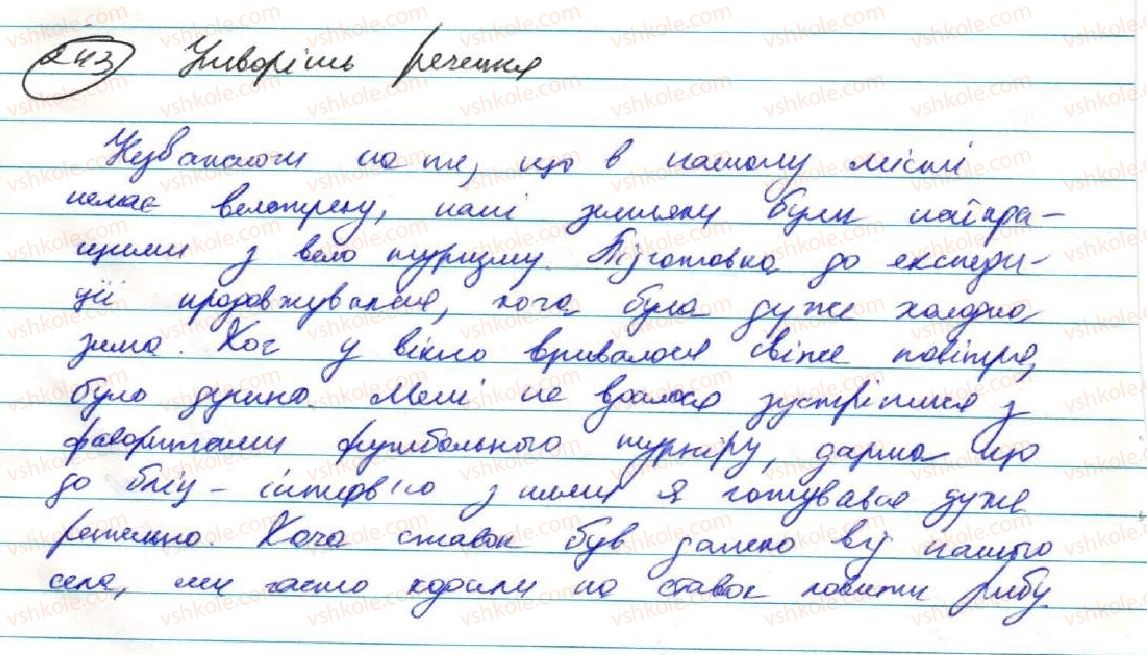 243 Утворіть речення
Незважаючи на те, що в нашому місті
немає велотреку, наші земляки були найкра-
щими з вело туризму. Підготовка до експеди-
ції продовжувалася, хоча була дуже холодна
зима. Хоч у вікно вривалося свіже повітря,
було душно. Мені не вдалося зустрітися з
фаворитами футбольного турніру, дарма що
до бліц-інтерв'ю з ними я готувався дуже
ретельно. Хоча ставок був далеко від нашого
села, ми часто ходили на ставок ловити рибу.